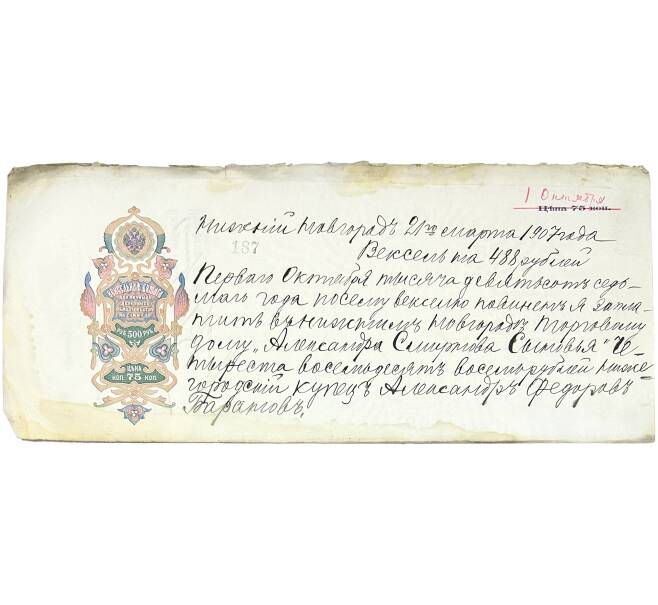 1 Октября
Цѣна 75 коп.
Нижній Новгородъ 21го марта 1907 года
187
Вексель на 488 рублей
Перваго Октября тысяча девятьсотъ седь-
маго года по сему векселю повиненъ я запла-
тить въ Нижнемъ Новгородѣ Торговому
дому „Александра Смирнова Сыновья" Че-
тыреста восемьдесятъ восемь рублей Ниже-
городскій купецъ Александръ Федоровъ
Барановъ.
ВЕКСЕЛЬНАЯ БУМАГА
РУБ 500 РУБ
ЦѢНА
КОП. 75 КОП.